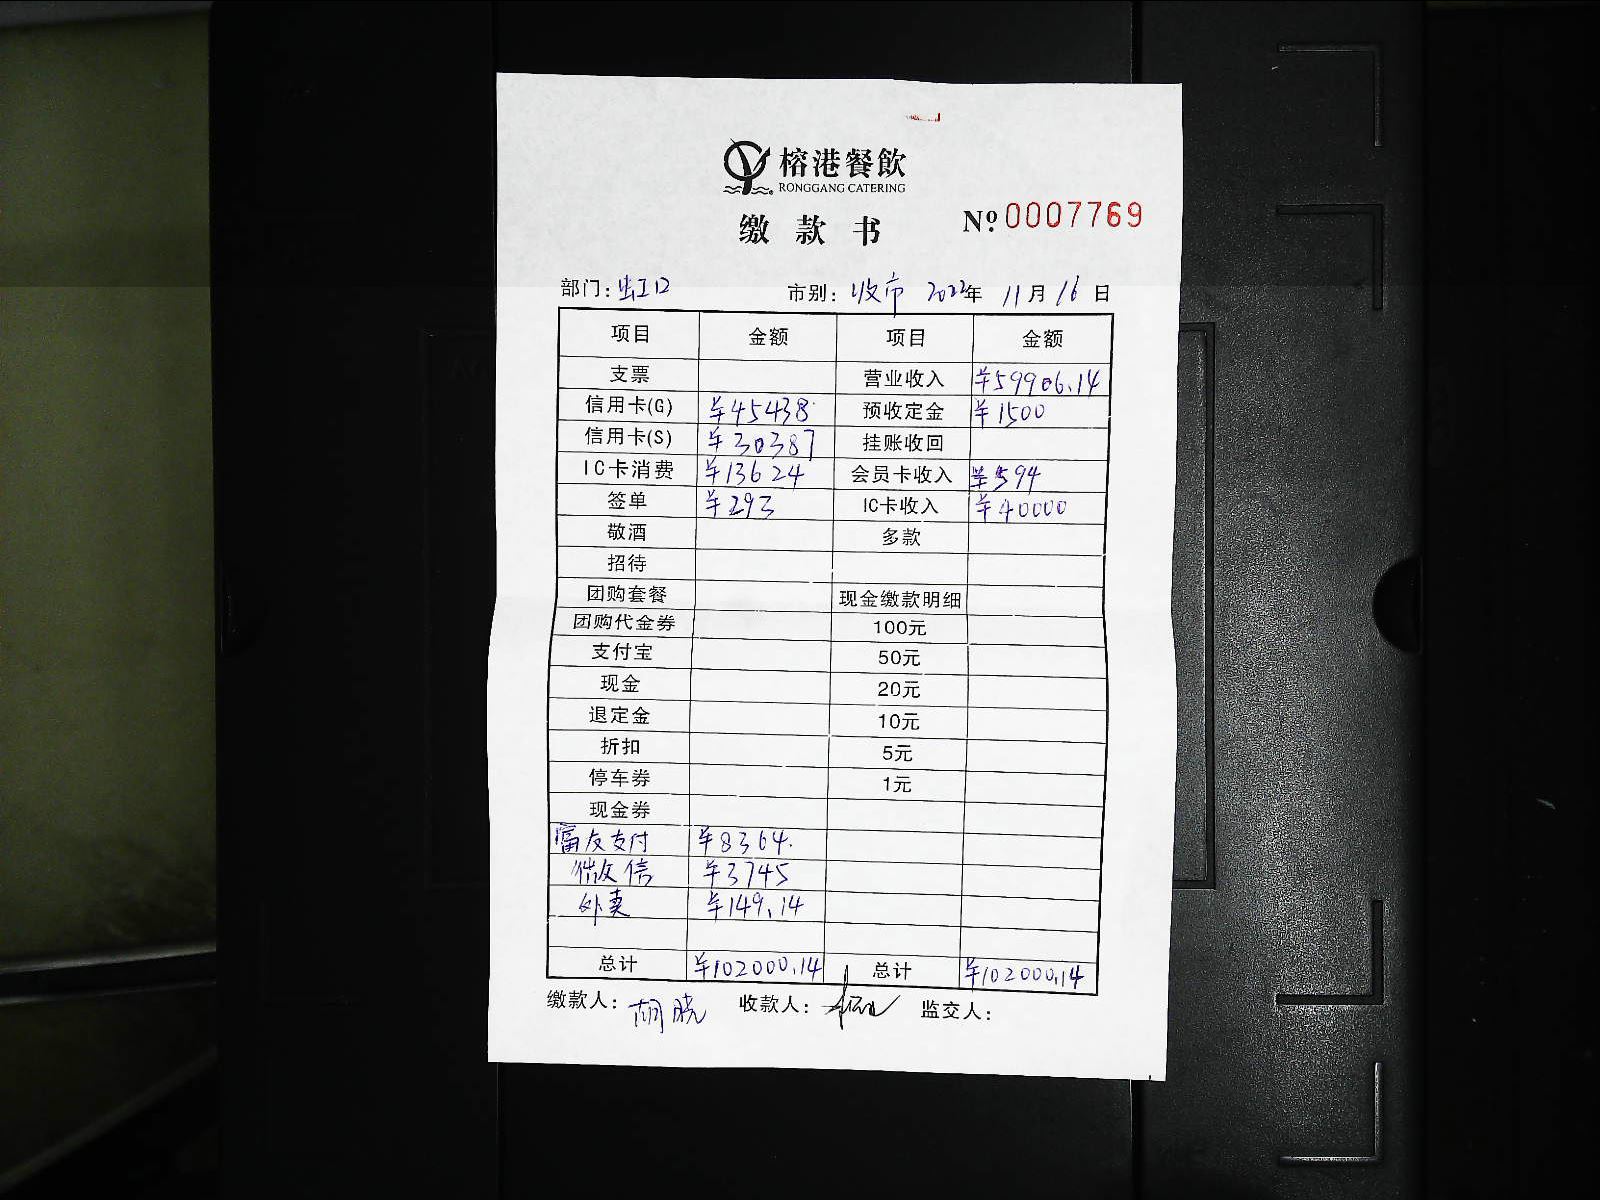 榕港餐飲
RONGGANG CATERING
缴款书 Nº 0007769
部门: 虹口 市别: 收市 2022年 11月 16日
项目 金额 项目 金额
支票 营业收入 ¥59906.14
信用卡(G) ¥45438 预收定金 ¥1500
信用卡(S) ¥30387 挂账收回
IC卡消费 ¥13624 会员卡收入 ¥594
签单 ¥293 IC卡收入 ¥40000
敬酒 多款
招待
团购套餐 现金缴款明细
团购代金券 100元
支付宝 50元
现金 20元
退定金 10元
折扣 5元
停车券 1元
现金券
富友支付 ¥8364.
微信 ¥3745
外卖 ¥149.14
总计 ¥102000.14 总计 ¥102000.14
缴款人: 胡晓 收款人: 监交人: